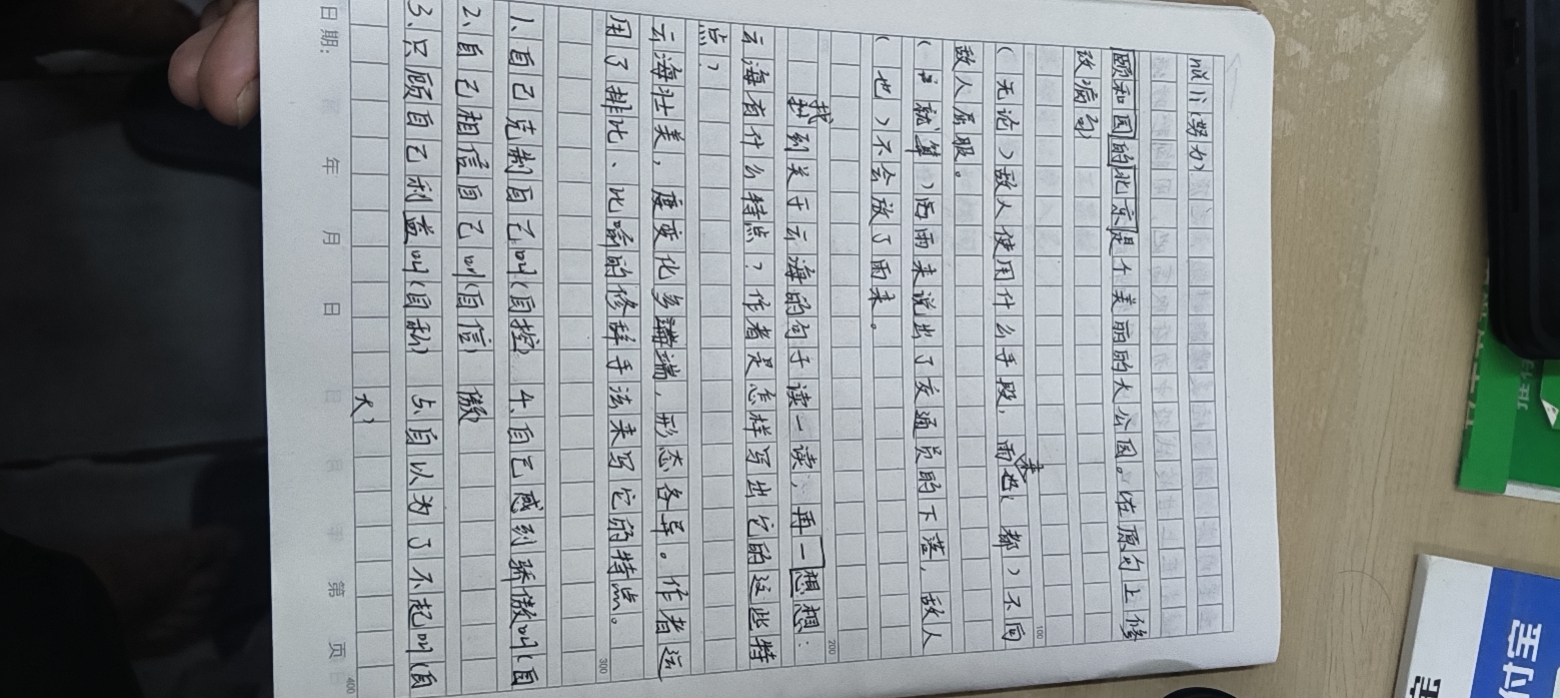 nǔ lì(努力)
颐和园的北京是个美丽的大公园。(在原句上修
改病句)
(无论)敌人使用什么手段,雨来(都)不向
敌人屈服。
(就算)雨来说出了交通员的下落,敌人
(也)不会放了雨来。
找到关于云海的句子读一读,再想一想:
云海有什么特点?作者是怎样写出它的这些特
点?
云海壮美,变化多端,形态各异。作者运
用了排比、比喻的修辞手法来写它的特点。
1、自己克制自己叫(自控) 4、自己感到骄傲叫(自
2、自己相信自己叫(自信) 傲)
3、只顾自己利益叫(自私) 5、自以为了不起叫(自
大)
日期: 年 月 日 第 页
100
200
300
400
付宝
宝